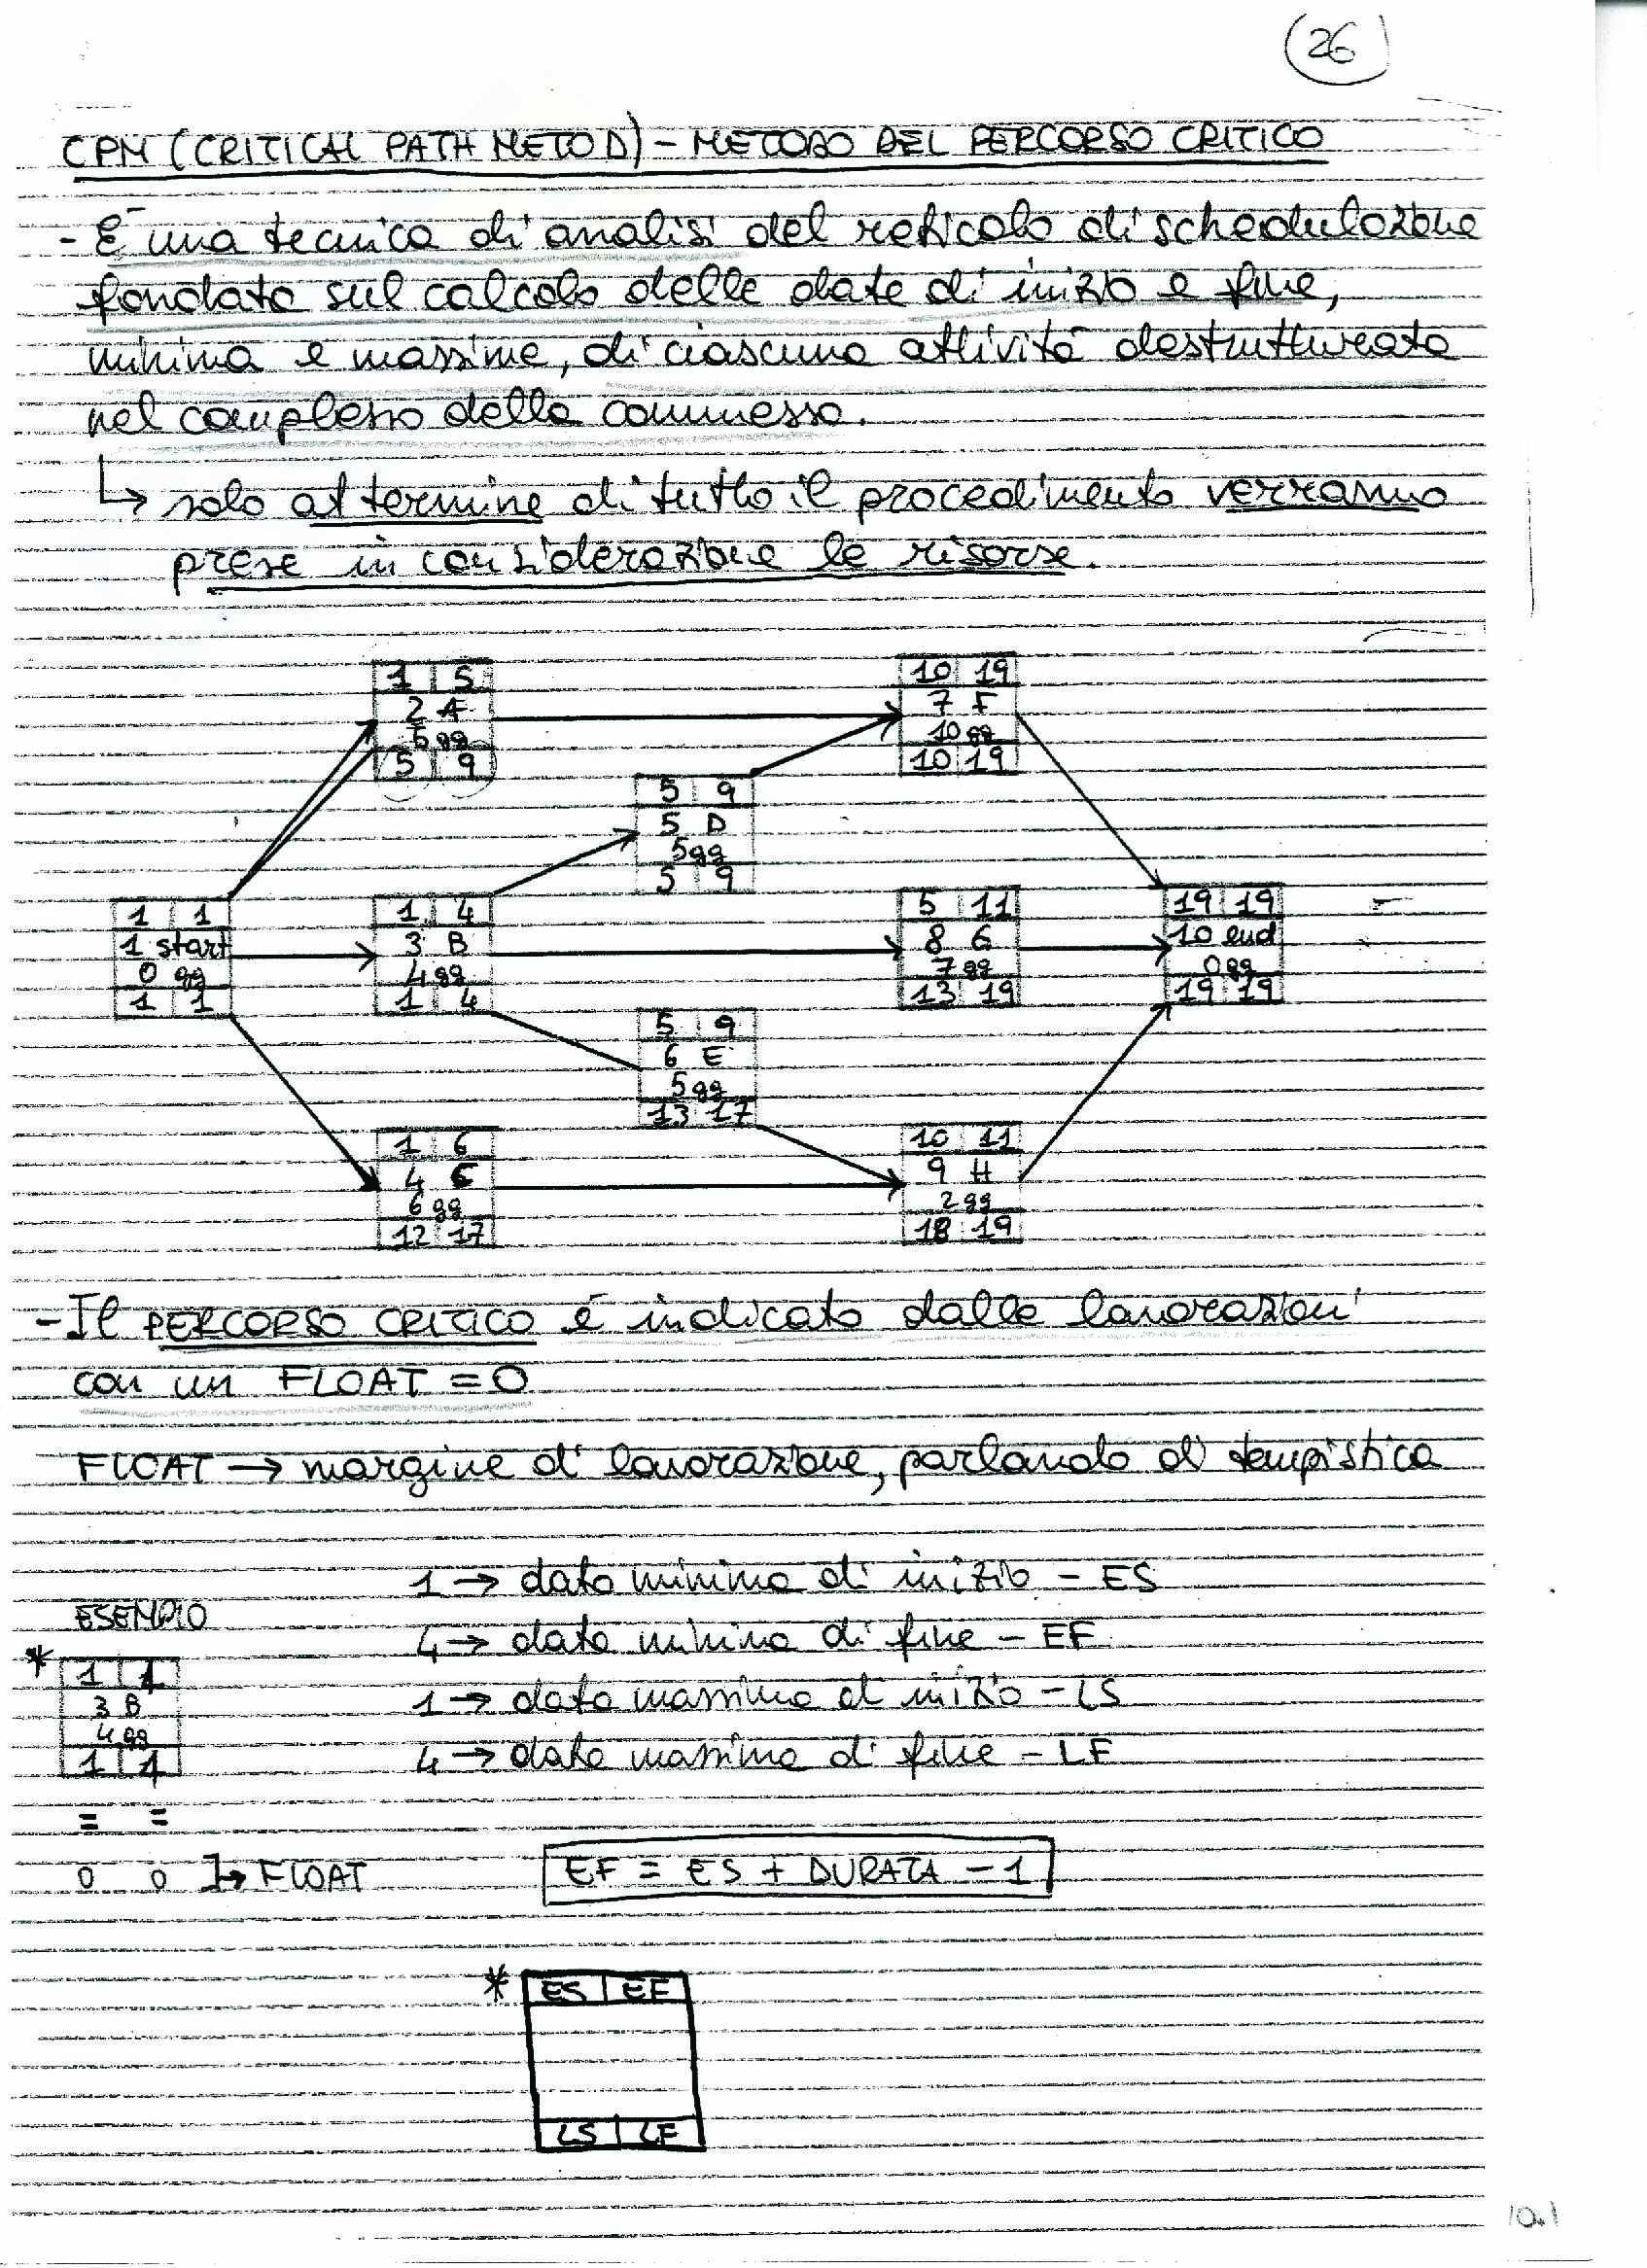 26
CPM (CRITICAL PATH METOD) - METODO DEL PERCORSO CRITICO
- È una tecnica di analisi del reticolo di schedulazione
fondata sul calcolo delle date di inizio e fine,
minima e massime, di ciascuna attività destrutturata
nel complesso della commessa.
↳ solo al termine di tutto il procedimento verranno
prese in considerazione le risorse.
1 | 5
2 A
5 gg
5 | 9
10 | 19
7 F
10 gg
10 | 19
5 | 9
5 D
5 gg
5 | 9
1 | 1
1 start
0 gg
1 | 1
1 | 4
3 B
4 gg
1 | 4
5 | 11
8 G
7 gg
13 | 19
19 | 19
10 end
0 gg
19 | 19
5 | 9
6 E
5 gg
13 | 17
1 | 6
4 C
6 gg
12 | 17
10 | 11
9 H
2 gg
18 | 19
- Il PERCORSO CRITICO è indicato dalle lavorazioni
con un FLOAT = 0
FLOAT → margine di lavorazione, parlando di tempistica
1 → data minima di inizio - ES
ESEMPIO
4 → data minima di fine - EF
* 1 | 4
3 B
4 gg
1 | 4
1 → data massima di inizio - LS
4 → data massima di fine - LF
= =
0 0 ]→ FLOAT
EF = ES + DURATA - 1
* ES | EF
LS | LF